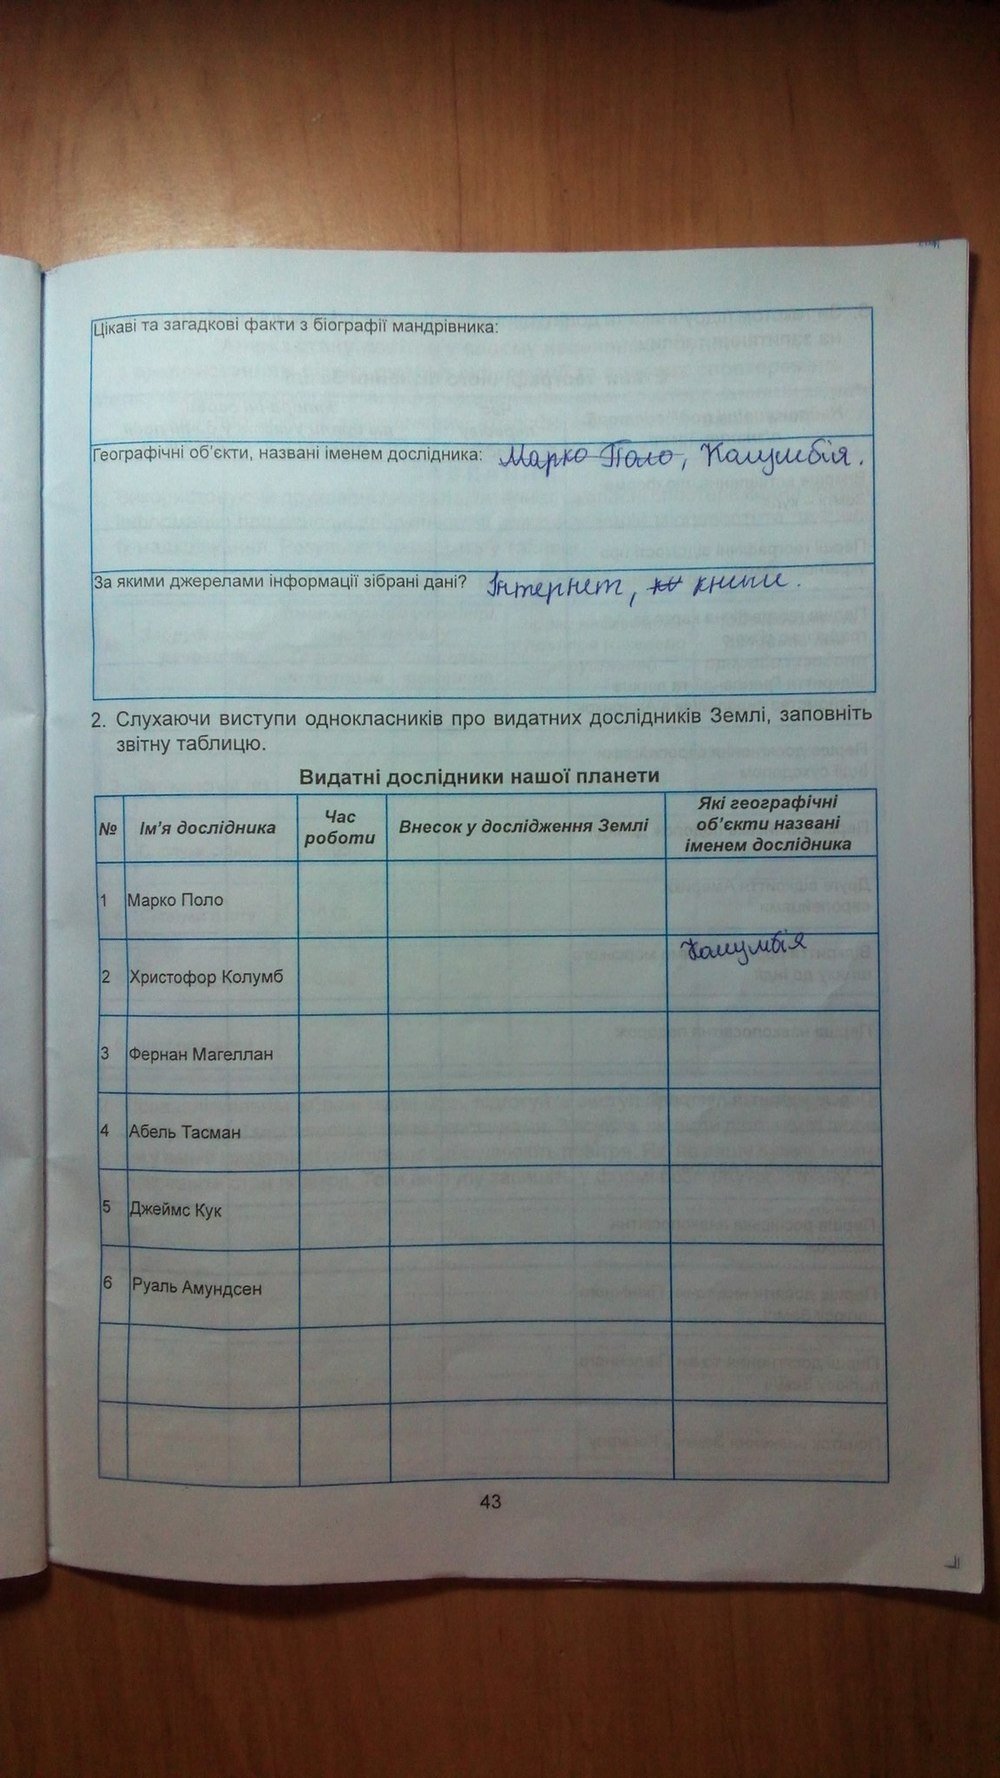 Цікаві та загадкові факти з біографії мандрівника:
Географічні об'єкти, названі іменем дослідника: Марко Поло, Колумбія.
За якими джерелами інформації зібрані дані? Інтернет, книги.
2. Слухаючи виступи однокласників про видатних дослідників Землі, заповніть
звітну таблицю.
Видатні дослідники нашої планети
№ Ім'я дослідника Час роботи Внесок у дослідження Землі Які географічні об'єкти названі іменем дослідника
1 Марко Поло
2 Христофор Колумб Колумбія
3 Фернан Магеллан
4 Абель Тасман
5 Джеймс Кук
6 Руаль Амундсен
43